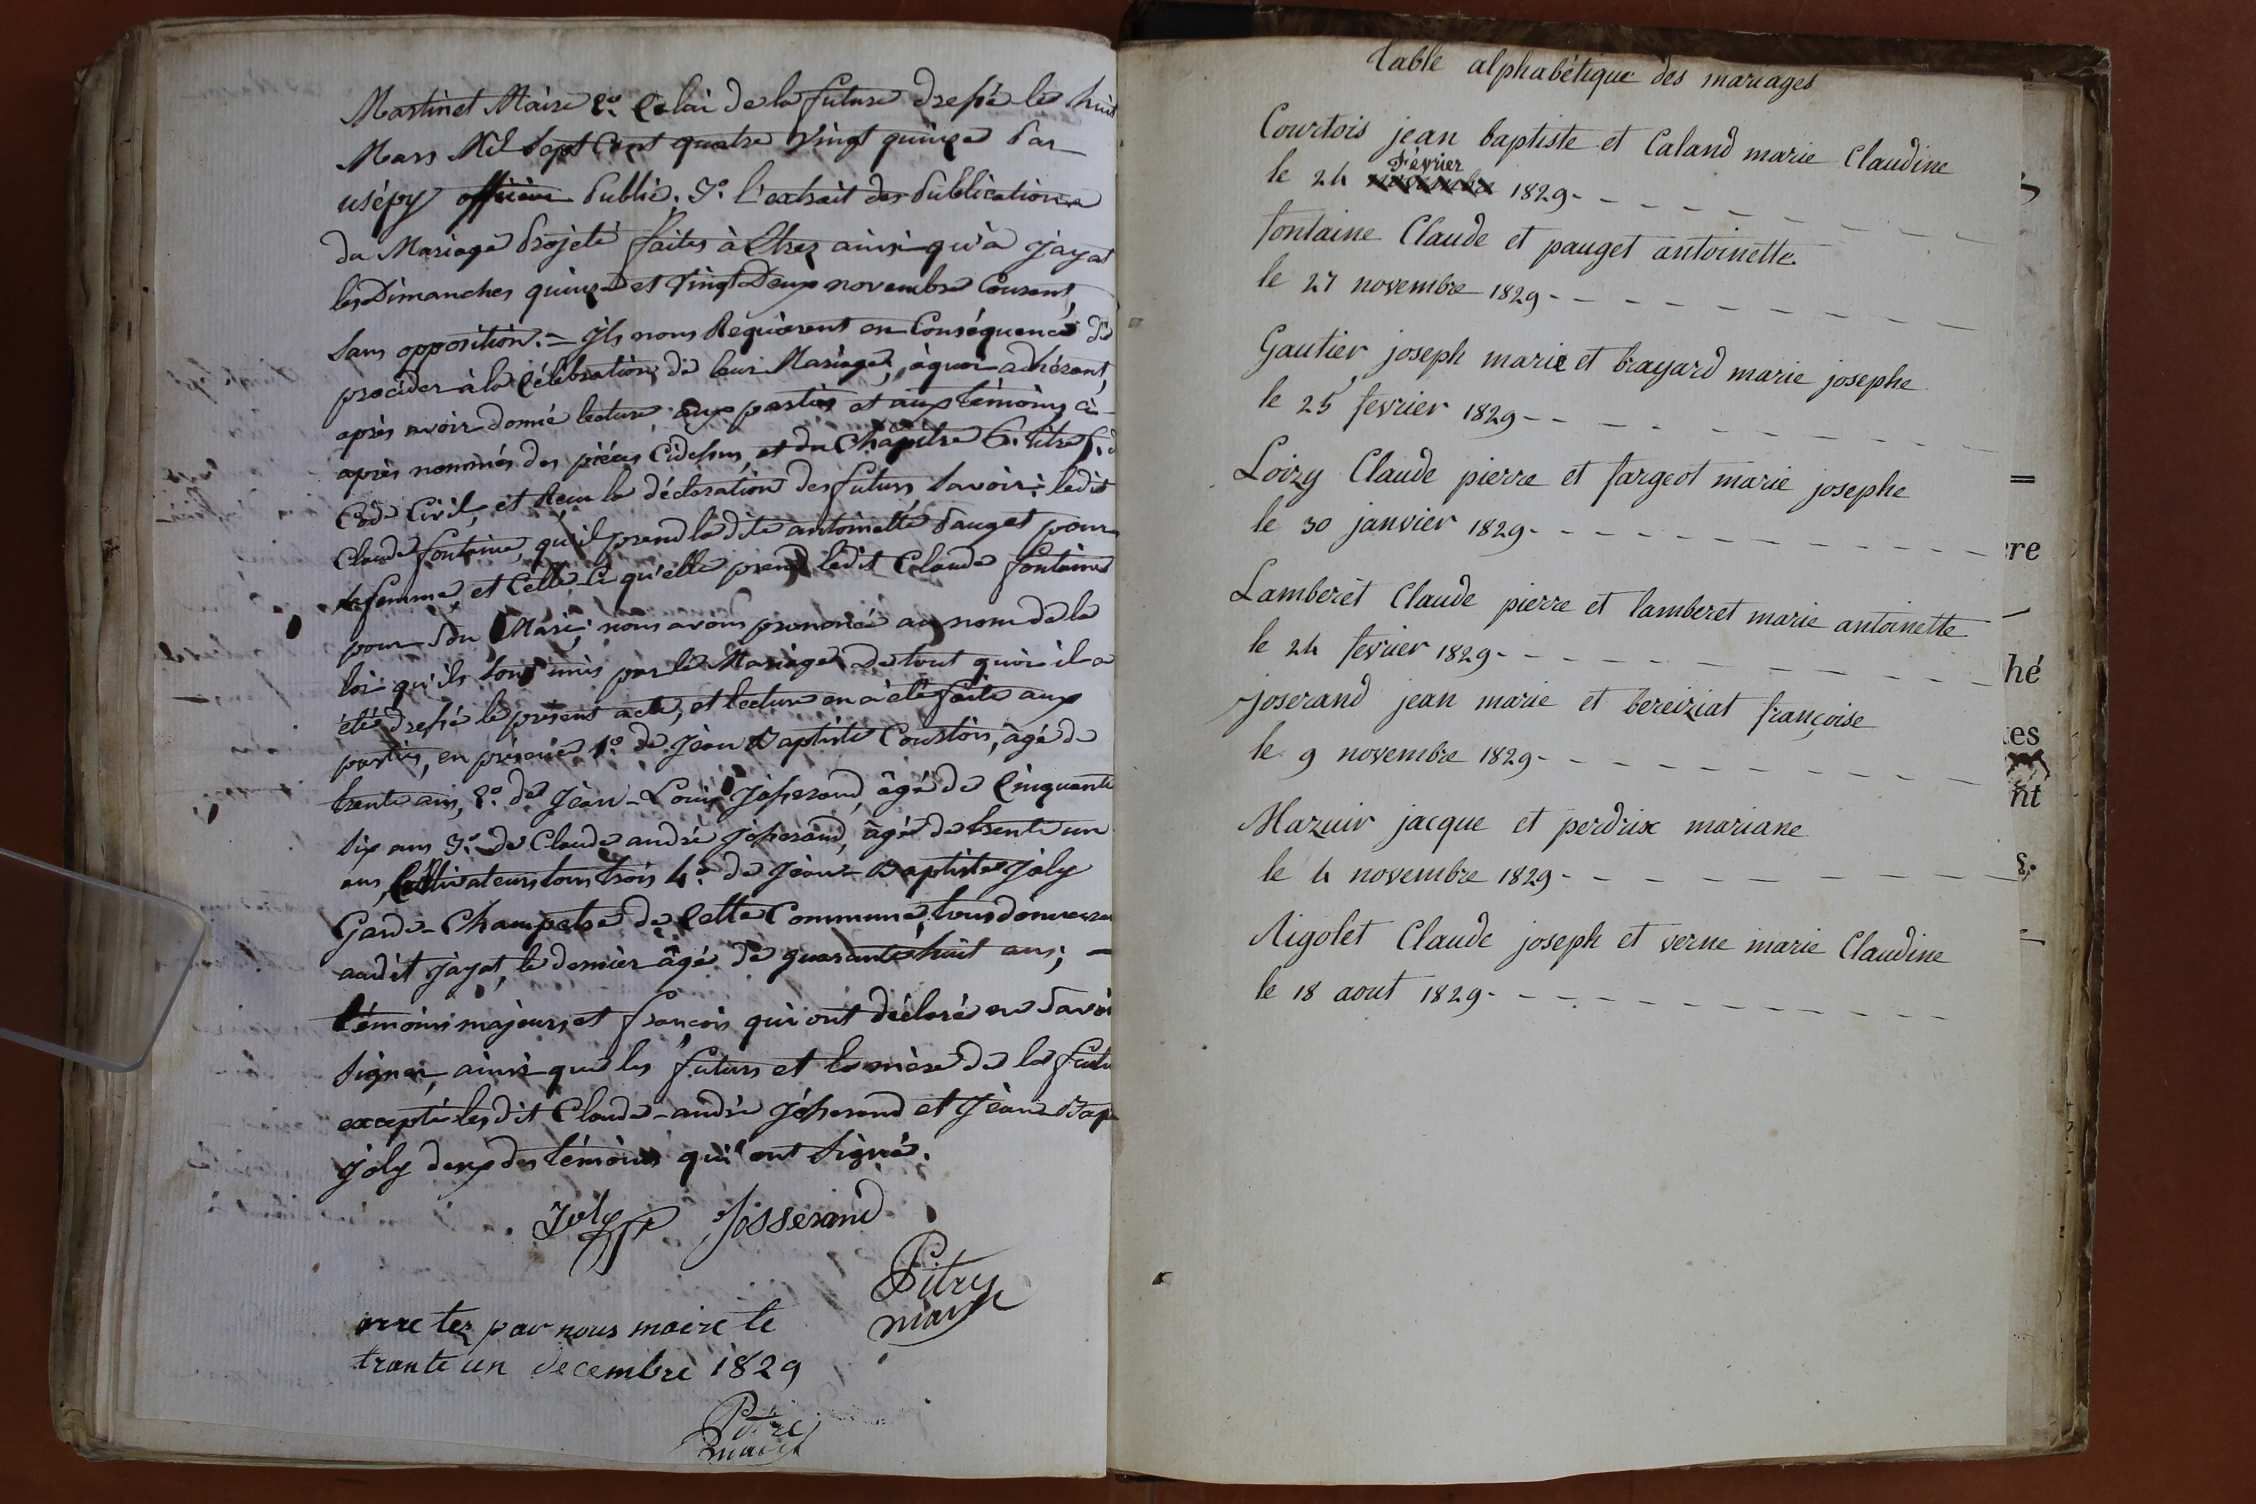 Martinet Maire 2.º Celui de la future dressé le huit
Mars Mil Sept Cent quatre vingt quinze Par
usépy officier Public. 3.º l'extrait des Publications
du Mariage Projeté faites à Etrez ainsi qu'à Jayat
les Dimanches quinze et vingt Deux novembre Courant,
Sans opposition. = Ils nous Requierent en Conséquence de
procéder à la Célébration de leur Mariage, à quoi adhérant,
après avoir donné lecture aux parties et aux témoins ci-
après nommés des pièces Cidessus, et du Chapitre 6. titre 5. d
Code Civil, et Reçu la déclaration des futurs, Savoir: ledit
Claude fontaine, qu'il prend ladite antoinette Pauget pour
sa femme, et Celle-Ci qu'elle prend ledit Claude fontaine
pour Son Mari; nous avons prononcé au nom de la
loi qu'ils Sont unis par le Mariage. De tout quoi il a
été dressé le présent acte, et lecture en a été faite aux
parties, en présence 1.º de Jean Baptiste Courtois, âgé de
trente ans, 2.º de Jean-Louis Josserand, âgé de Cinquante
Six ans 3.º de Claude andré Josserand, âgé de trente un
ans, Cultivateurs tous trois 4.º de Jean-Baptiste Joly
Garde-Champetre de Cette Commune, tous demeurant
audit Jayat, le dernier âgé de quarante huit ans; —
témoins majeurs et françois qui ont déclaré ne Savoir
Signer, ainsi que les futurs et la mère de la futu
excepté lesdit Claude-andré Josserand et Jean Bap
Joly deux des témoins qui ont Signé.
Joly Josserand
Pitre
maire
arretez par nous maire le
trante un decembre 1829
Pitre
maire
table alphabétique des mariages
Courtois jean baptiste et Caland marie Claudine
Février
le 24 novembre 1829 - - - - - - - - -
fontaine Claude et pauget antoinette
le 27 novembre 1829 - - - - - - - - -
Gautier joseph marie et brayard marie josephe
le 25 fevrier 1829 - - - - - - - - -
Loizy Claude pierre et fargeot marie josephe
le 30 janvier 1829 - - - - - - - - -
Lamberet Claude pierre et lamberet marie antoinette
le 24 fevrier 1829 - - - - - - - - -
joserand jean marie et bereiziat françoise
le 9 novembre 1829 - - - - - - - - -
Mazuir jacque et perdrix mariane
le 4 novembre 1829 - - - - - - - - -
Rigolet Claude joseph et verne marie Claudine
le 18 aout 1829 - - - - - - - - -
re
hé
es
nt